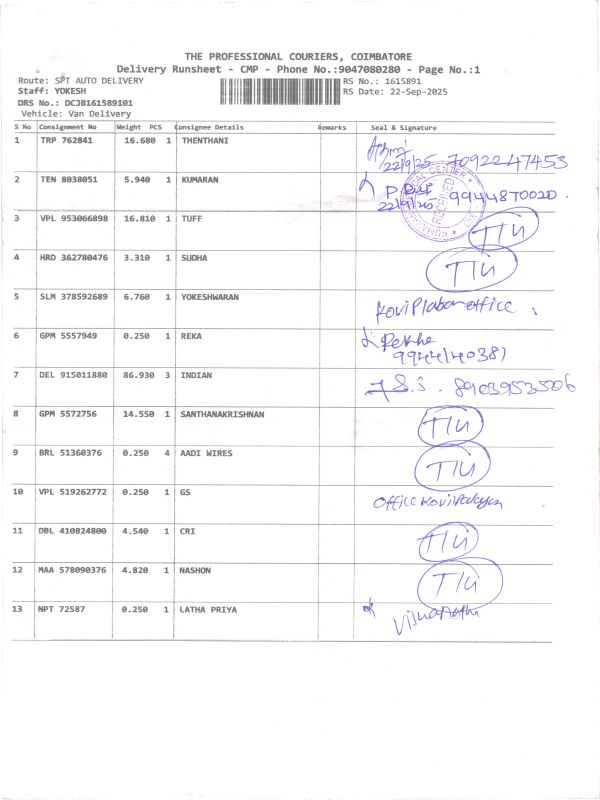 THE PROFESSIONAL COURIERS, COIMBATORE
Delivery Runsheet - CMP - Phone No.:9047080280 - Page No.:1
Route: SPT AUTO DELIVERY RS No.: 1615891
Staff: YOKESH RS Date: 22-Sep-2025
DRS No.: DCJB161589101
Vehicle: Van Delivery
S No Consignment No Weight PCS Consignee Details Remarks Seal & Signature
1 TRP 762841 16.680 1 THENTHANI
22/9/25 7092247453
2 TEN 8038051 5.940 1 KUMARAN
22/9/25
3 VPL 953066898 16.810 1 TUFF T/U
4 HRD 362780476 3.310 1 SUDHA T/U
5 SLM 378592689 6.760 1 YOKESHWARAN office
6 GPM 5557949 0.250 1 REKA Rekha
9944140381
7 DEL 915011880 86.930 3 INDIAN 8903953506
8 GPM 5572756 14.550 1 SANTHANAKRISHNAN T/U
9 BRL 51360376 0.250 4 AADI WIRES T/U
10 VPL 519262772 0.250 1 GS office
11 DBL 410824800 4.540 1 CRI T/U
12 MAA 578090376 4.820 1 NASHON T/U
13 NPT 72587 0.250 1 LATHA PRIYA